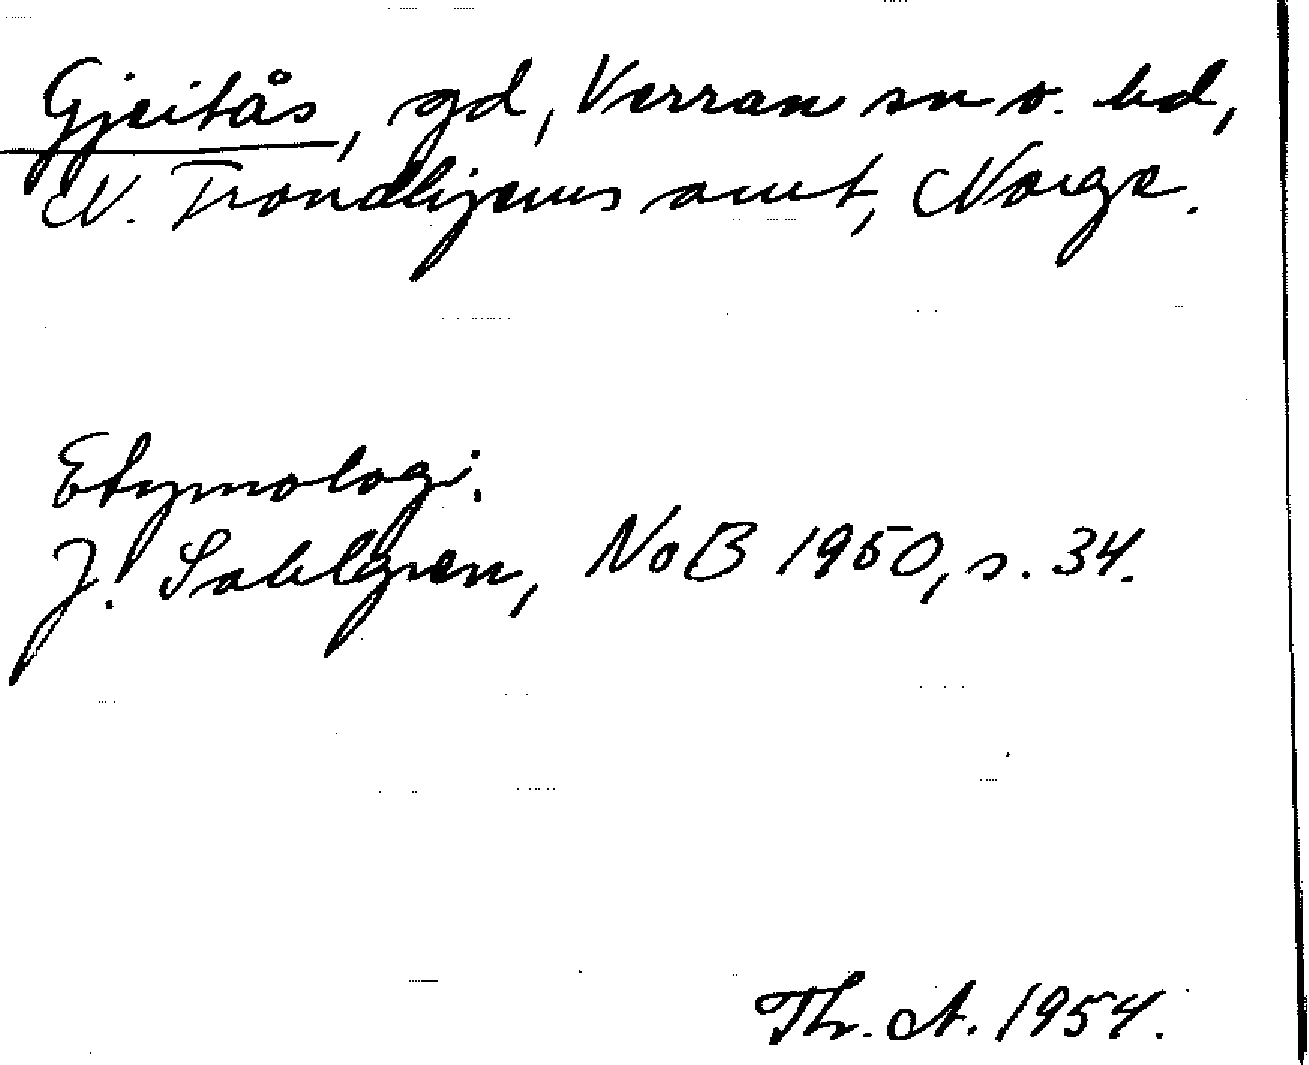 Gjeitås, gd, Verran sn o. hd,
N. Trondhjems amt, Norge.
Etymologi.
J. Sahlgren, NoB 1950, s. 34.
Th. A. 1954.